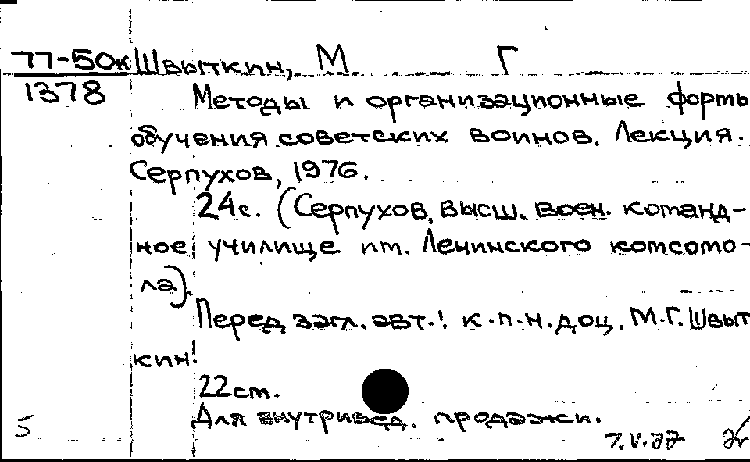 77-50к Швыткин, М Г
1378 Методы и организационные формы
обучения советских воинов. Лекция.
Серпухов, 1976.
24с. (Серпухов. высш. воен. команд-
ное училище им. Ленинского комсомо-
ла).
Перед загл. авт.: к.п.н. доц. М.Г. Швыт
кин.
22 см.
Для внутривед. продажи.
5 7.V.77